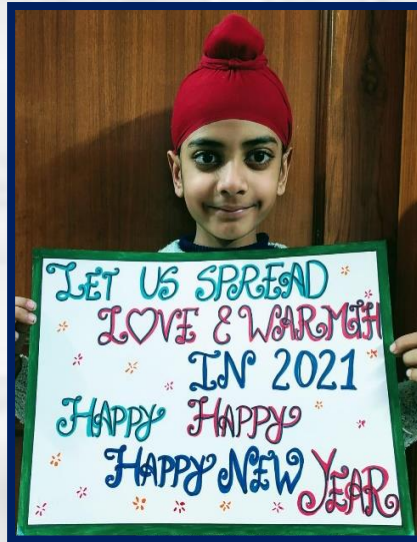 LET US SPREAD
LOVE & WARMTH
IN 2021
HAPPY HAPPY
HAPPY NEW YEAR